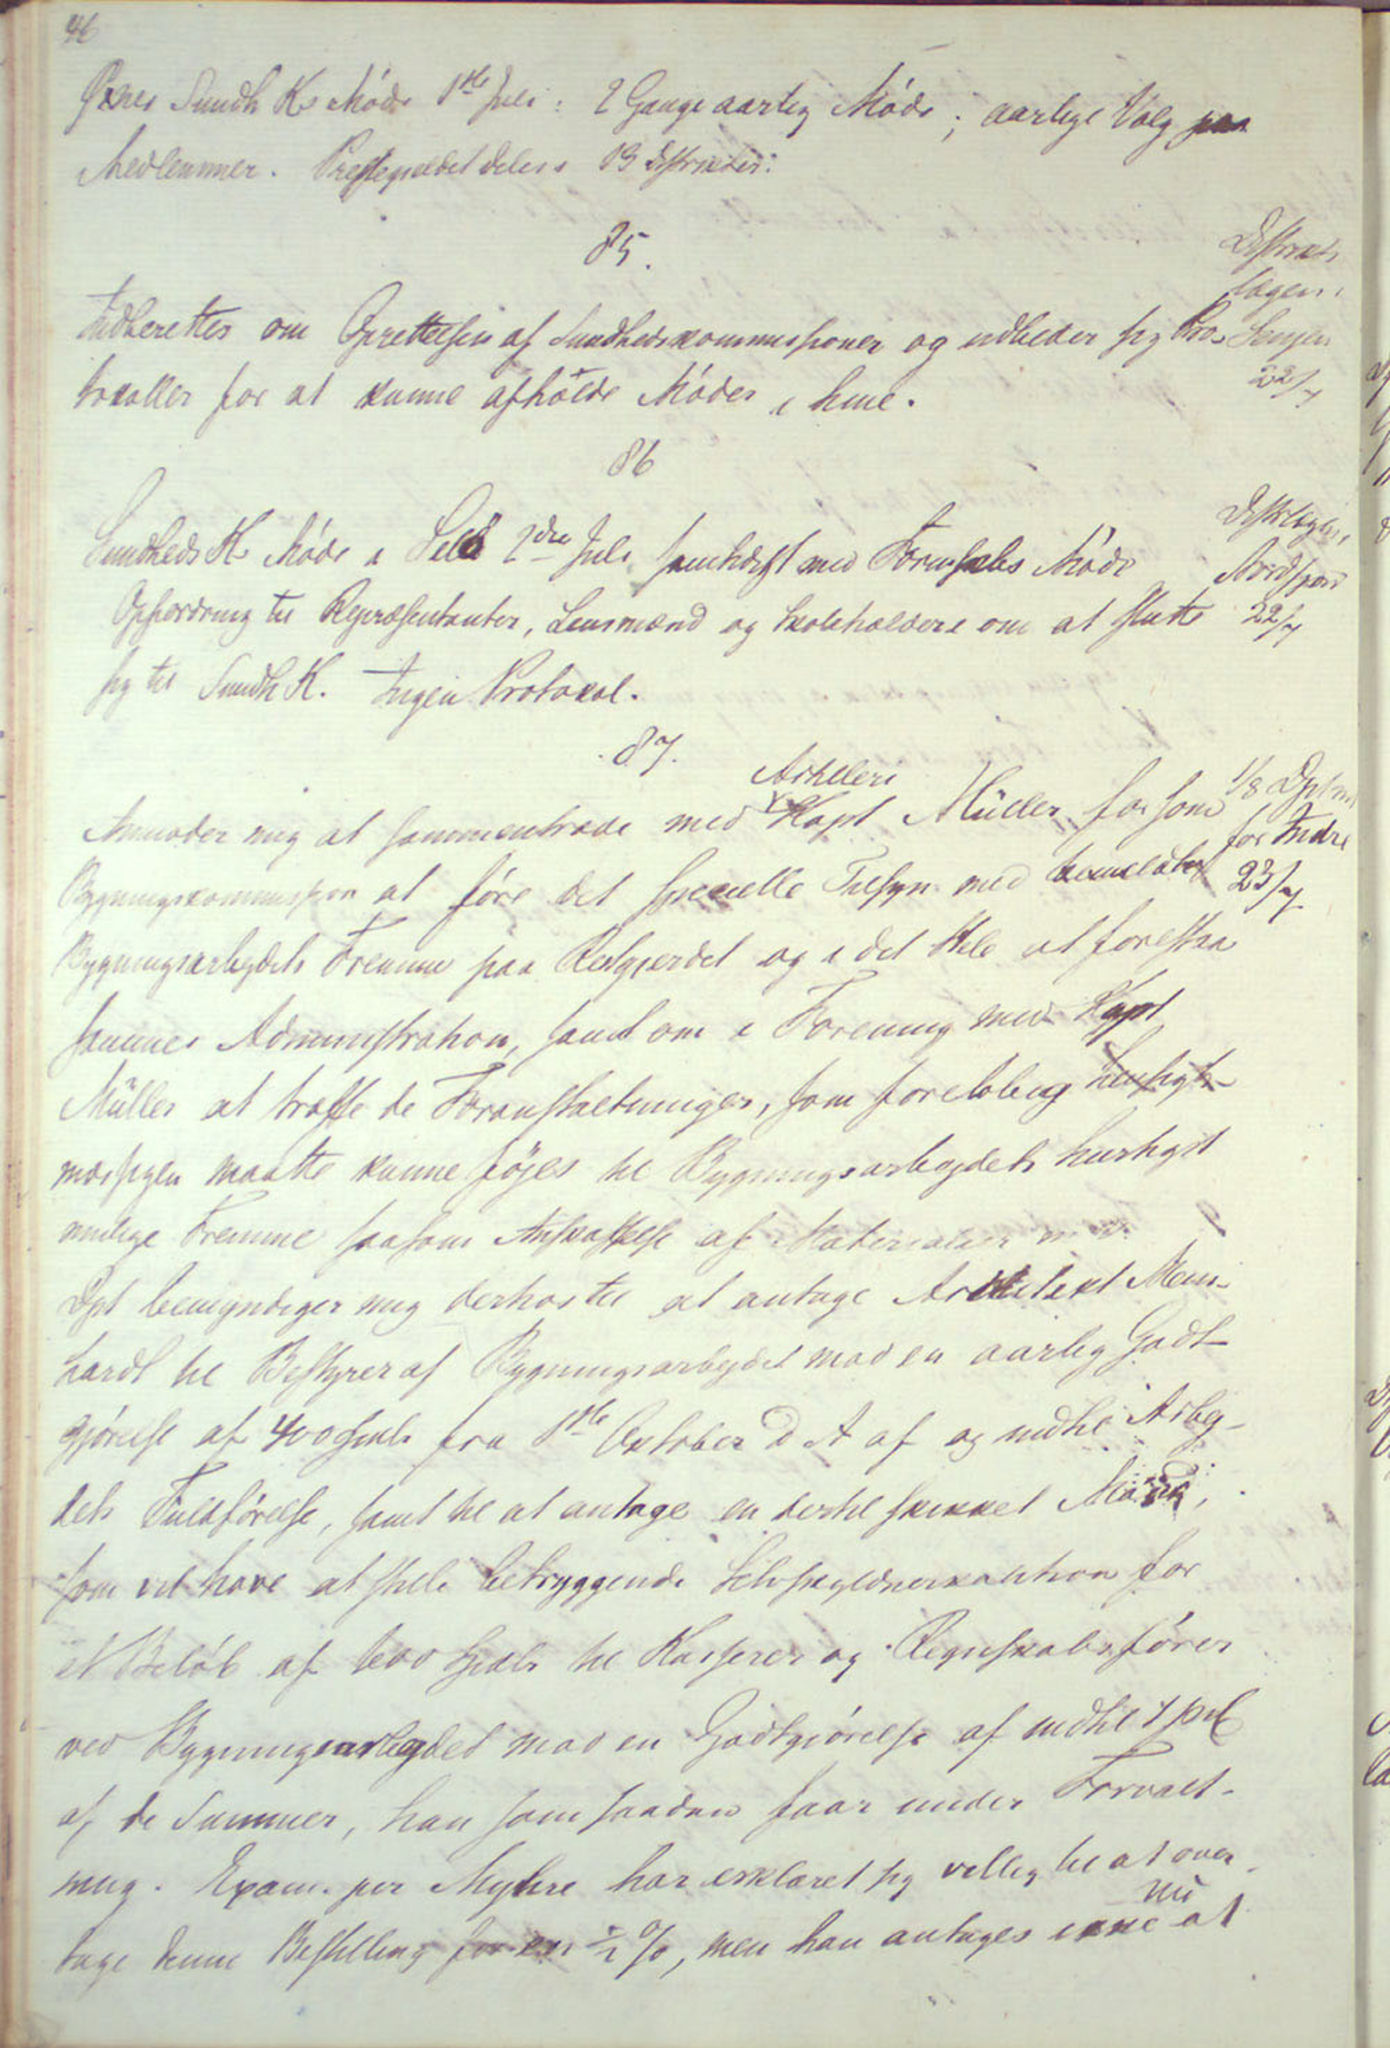 46
Øxnes Sundh Ks Møde 1ste Juli: 2 Gange aarlig Møde; aarlige Valg paa
Medlemmer. Præstegjeldet deles i 13 Distrikter.
85.
Distrikts
lægen i
Senjen
22/7
Indberetter om Oprettelsen af Sundhedskommissioner og udbeder sig Pro-
tokoller for at kunne afholde Møder i hine.
86
Distrlægen,
Nordfjord
22/7
Sundheds K. Møde i Selø 2den Juli samtidigt med Formskabs Møde
Opfordring til Repræsentanter, Lensmænd og Skoleholdere om at slutte
sig til Sundh K. Ingen Protokol.
87.
1/8 Dptm
for Indre
23/7
Artilleri
Anmoder mig at sammentræde med Kapt Müller for som
Bygningskommission at føre det specielle Tilsyn med
Bygningsarbejdets Fremme paa Reitgjerdet og i det Hele at forestaa
sammes Administration, samt om i Forening med Kapt
Müller at træffe de Foranstaltninger, som foreløbig hensigts-
mæssigen maatte kunne føjes til Bygningsarbejdets hurtigst
mulige Fremme saasom Anskaffelse af Materialier m. v.
Dpt bemyndiger mig derhos til at antage Arkitekt Mein-
hardt til Bestyrer af Bygningsarbejdet mod en aarlig Godt-
gjørelse af 400 Spdlr fra 1ste Oktober d A af og indtil Arbej-
dets Fuldførelse, samt til at antage en dertil skikket Mand,
som vil have at stille betryggende Selvskyldnerkaution for
et Beløb af 600 Spdlr til Kasserer og Regnskabsfører
ved Bygningsarbejdet mod en Godtgjørelse af indtil 1 pCt
af de Summer, han som saadan faar under Forvalt-
ning. Exam. jur Myhre har erklæret sig villig til at over-
nu
tage denne Bestilling for en 1/2 %, men han antages ikke at